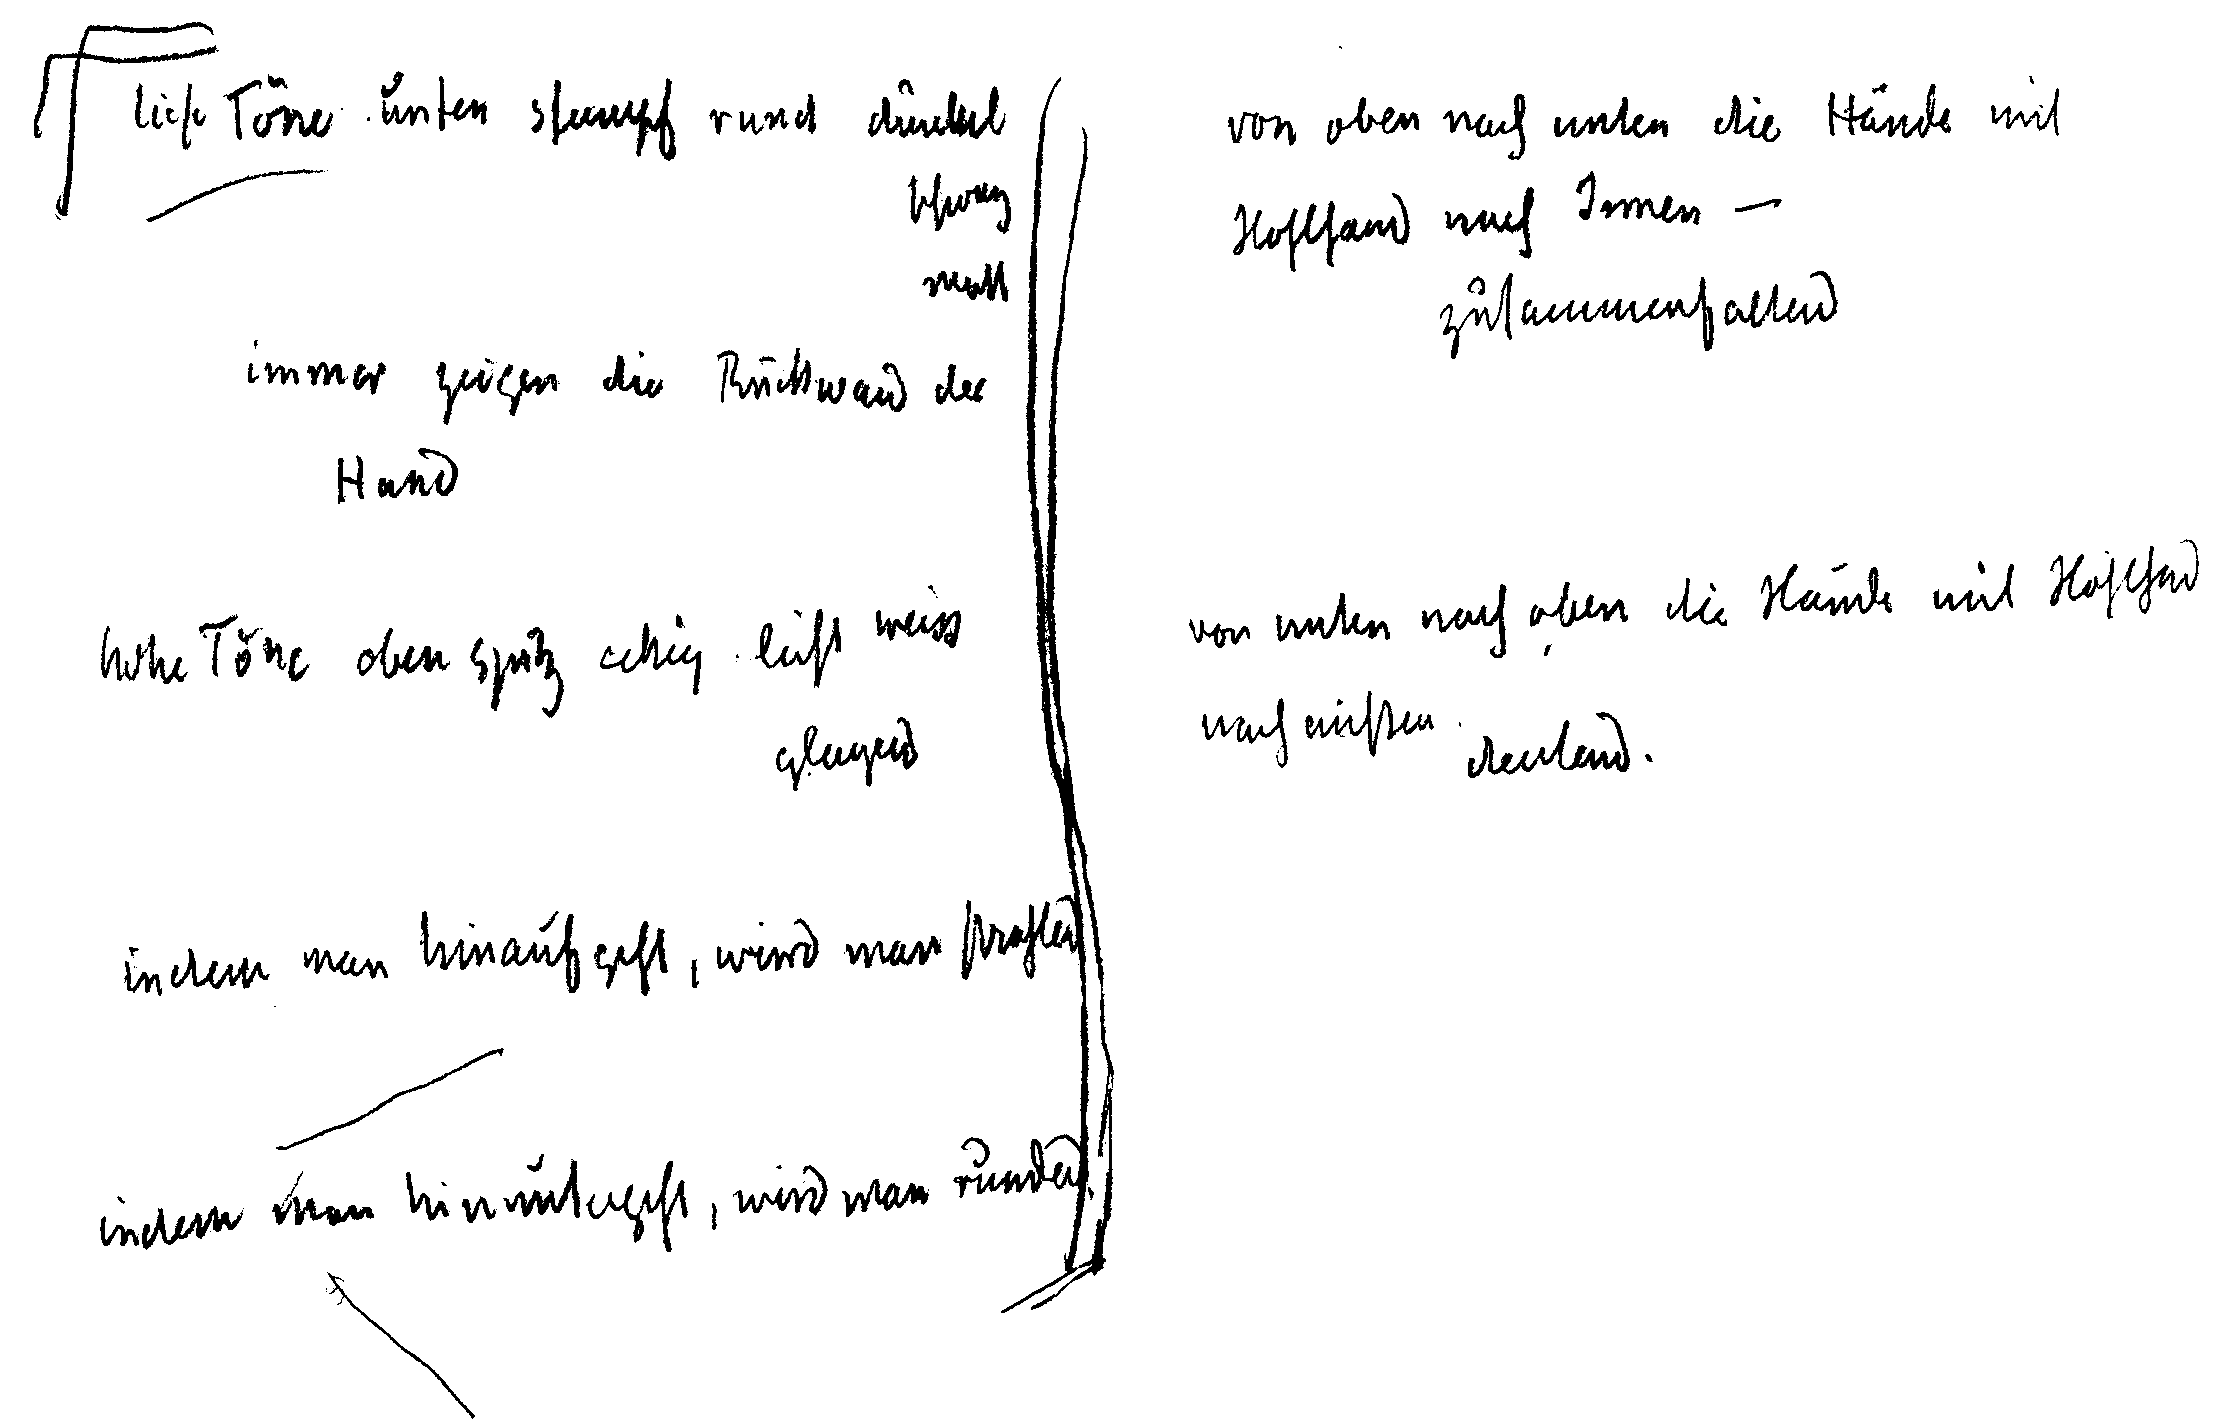 tiefe Töne unten stumpf rund dunkel
schwarz
matt
immer zeigen die Rückwand der
Hand
hohe Töne oben spitz eckig licht weiss
glanzend
indem man hinaufgeht, wird man strahlend
indem man hinuntergeht, wird man rundend.
von oben nach unten die Hände mit
Hohlhand nach Innen —
zusammenfallend
von unten nach oben die Hände mit Hohlhand
nach aussen
deutend.